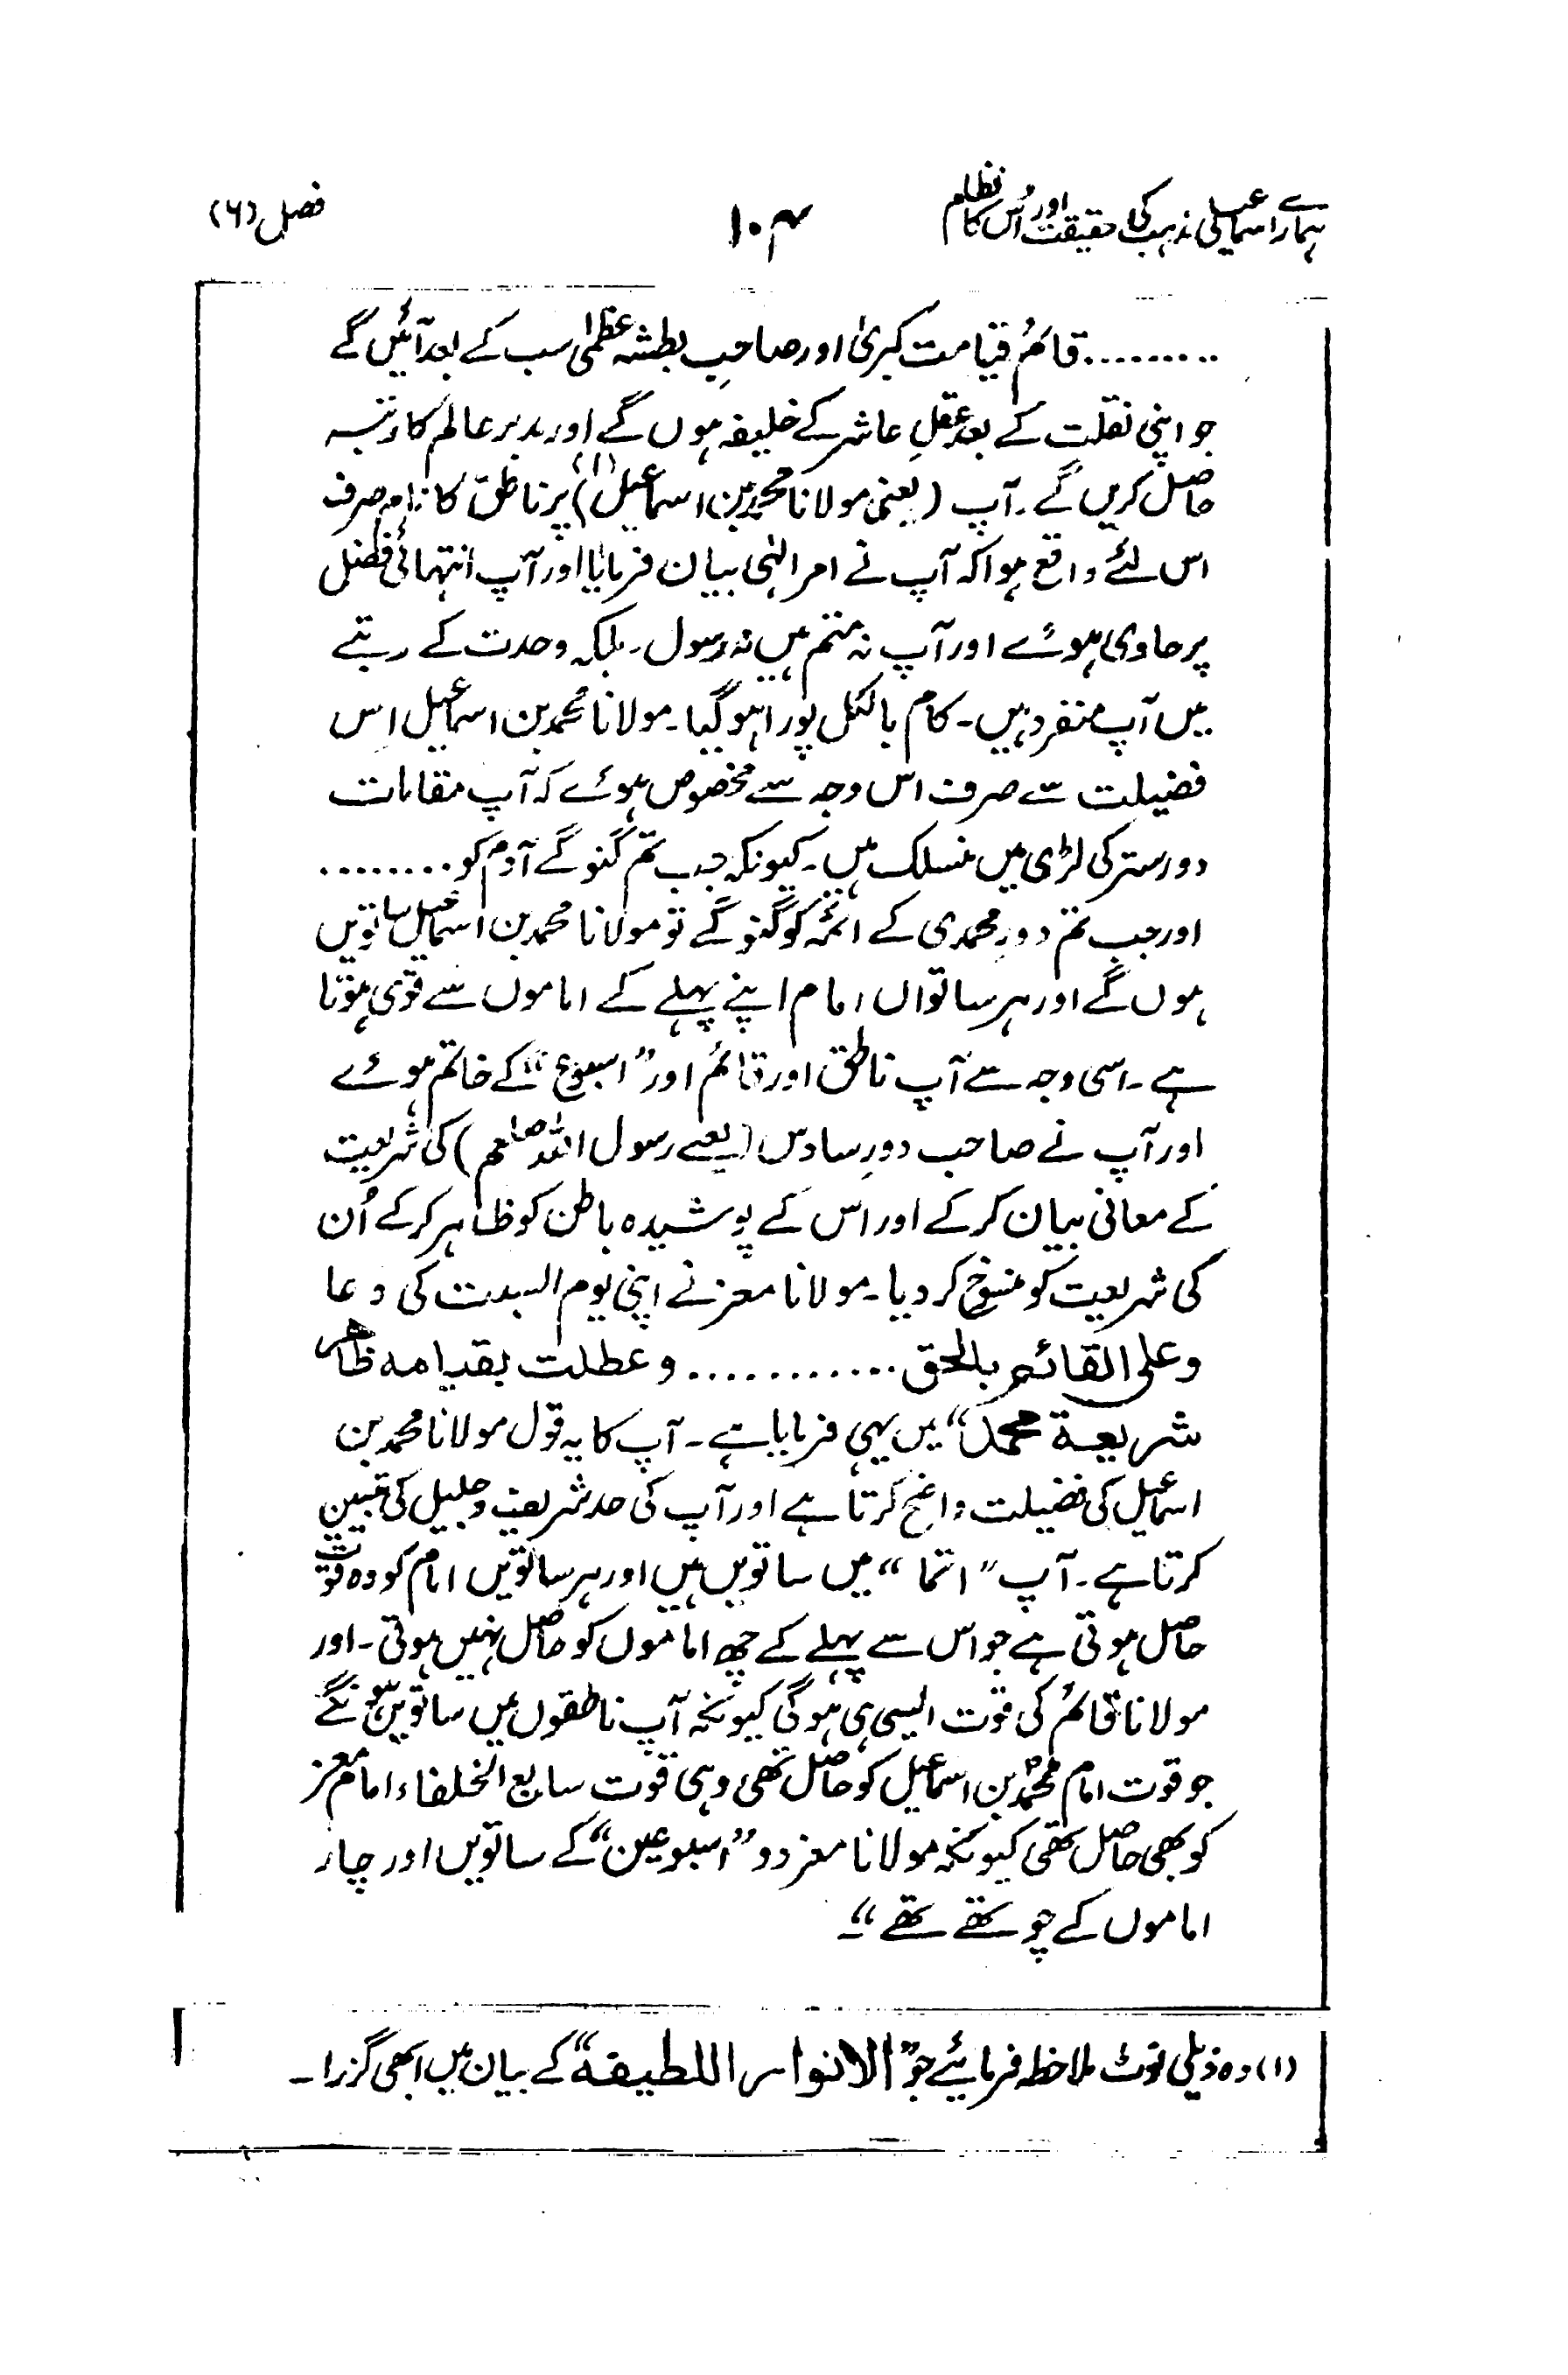 ہمارے اسماعیلی مذہب کی حقیقت اور اُس کا نظام
۱۰۴
فصل (۶)
.........قائم قیامت کبریٰ اور صاحبِ بطشہ عظمیٰ سب کے بعد آئیں گے
جو اپنی نقلت کے بعد عقلِ عاشر کے خلیفہ ہوں گے اور مدبر عالم کا رتبہ
حاصل کریں گے۔ آپ (یعنی مولانا محمد بن اسماعیل) (۱) پر ناطق کا نام صرف
اس لئے واقع ہوا کہ آپ نے امر الٰہی بیان فرمایا اور آپ انتہائی فضل
پر حاوی ہوئے اور آپ نہ متم ہیں نہ رسول۔ بلکہ وحدت کے رتبے
میں آپ منفرد ہیں۔ کام بالکل پورا ہو گیا۔ مولانا محمد بن اسماعیل اِس
فضیلت سے صرف اس وجہ سے مخصوص ہوئے کہ آپ مقامات
دور ستر کی لڑی میں منسلک ہیں۔ کیونکہ جب تم گنو گے آدم کو........
اور جب تم دورِ محمدی کے ائمہ کو گنو گے تو مولانا محمد بن اسماعیل ساتویں
ہوں گے اور ہر ساتواں امام اپنے پہلے کے اماموں سے قوی ہوتا
ہے۔ اسی وجہ سے آپ ناطق اور قائم اور ”اسبوع“ کے خاتم ہوئے
اور آپ نے صاحب دورِ سادس (یعنے رسول اللہ صلعم) کی شریعت
کے معانی بیان کر کے اور اس کے پوشیدہ باطن کو ظاہر کر کے اُن
کی شریعت کو منسوخ کر دیا۔ مولانا معز نے اپنی یوم السبت کی دعا
وعلی القائم بالحق............وعطلت بقیامه ظاهر
شریعة محمد“ میں یہی فرمایا ہے۔ آپ کا یہ قول مولانا محمد بن
اسماعیل کی فضیلت واضح کرتا ہے اور آپ کی حد شریف و جلیل کی تبیین
کرتا ہے۔ آپ ”اتما“ میں ساتویں ہیں اور ہر ساتویں امام کو وہ قوت
حاصل ہوتی ہے جو اس سے پہلے کے چھ اماموں کو حاصل نہیں ہوتی۔ اور
مولانا قائم کی قوت ایسی ہی ہوگی کیونکہ آپ ناطقوں میں ساتویں ہونگے
جو قوت امام محمد بن اسماعیل کو حاصل تھی وہی قوت سابع الخلفاء امام معز
کو بھی حاصل تھی کیونکہ مولانا معز دو ”اسبوعین“ کے ساتویں اور چار
اماموں کے چوتھے تھے“۔
(۱) وہ ذیلی نوٹ ملاحظہ فرمایئے جو ”الانوار اللطیفة“ کے بیان میں ابھی گزرا۔